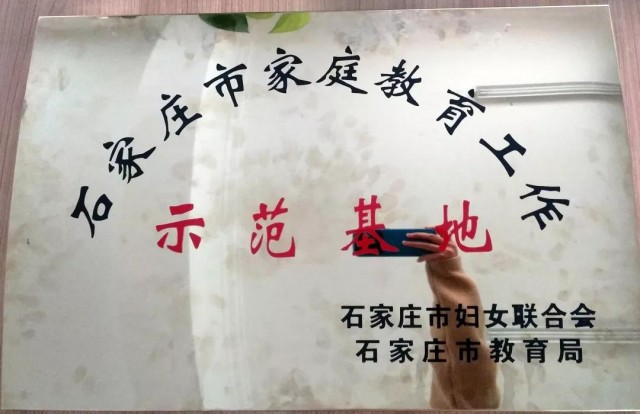 石家庄市家庭教育工作
示范基地
石家庄市妇女联合会
石家庄市教育局